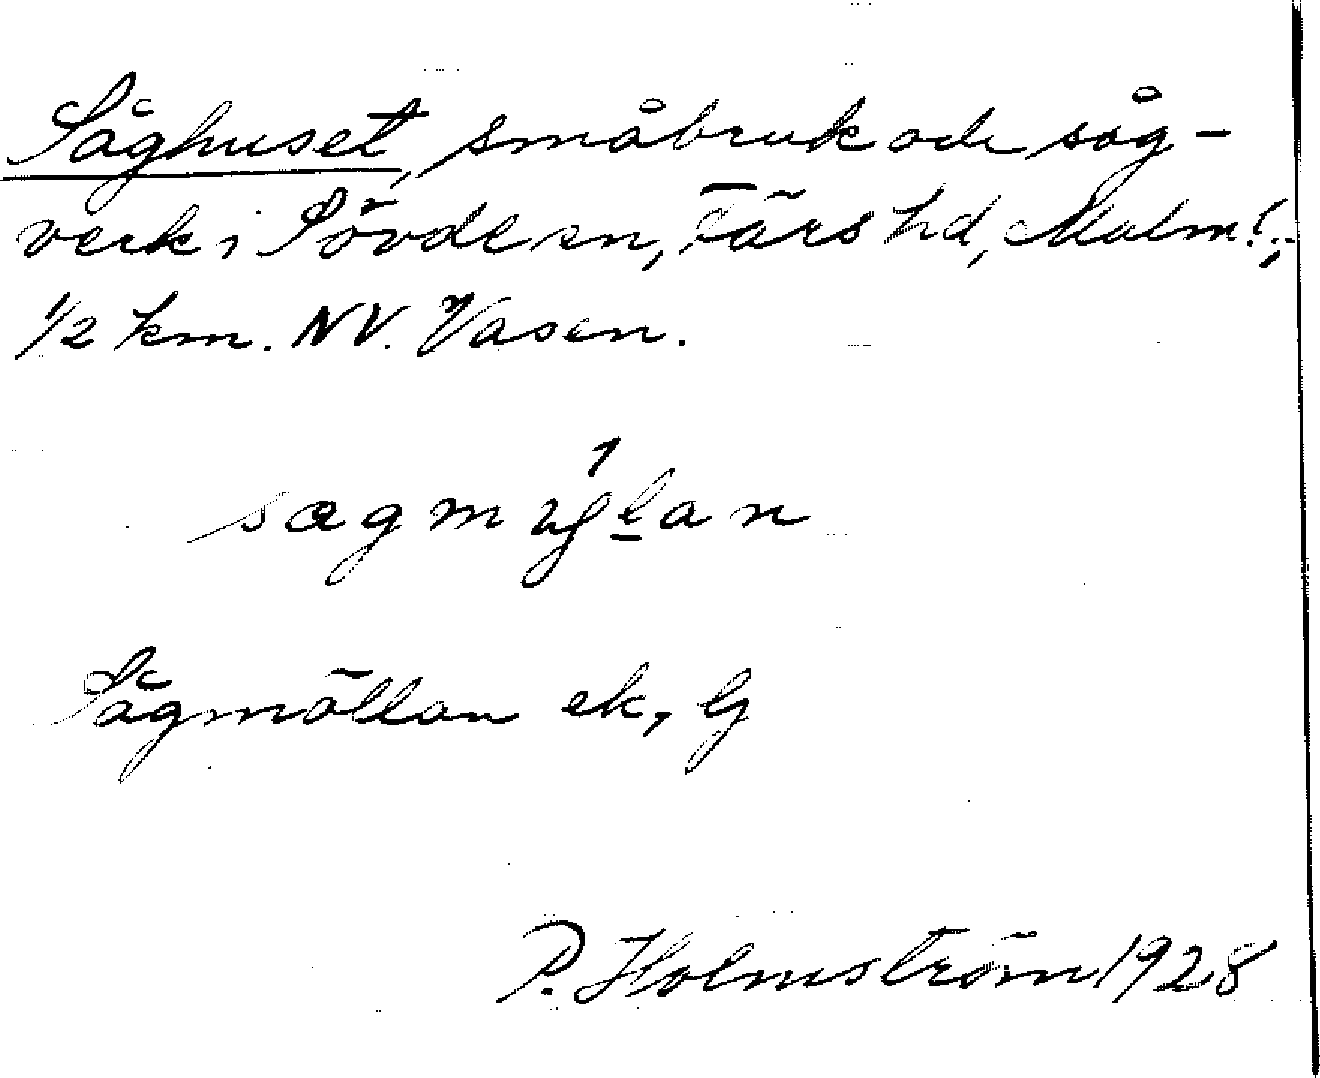 Såghuset, småbruk och såg-
verk i Sövde sn, Färs hd, Malm.l.,
1/2 km. NV. Vasen.
Sågmöllan ek, G
P. Holmström 1928